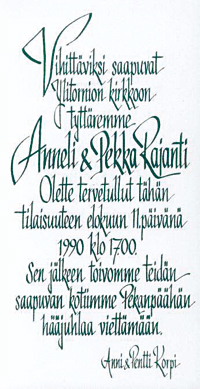 Vihittäviksi saapuvat
Ylitornion kirkkoon
tyttäremme
Anneli & Pekka Rajanti
Olette tervetullut tähän
tilaisuuteen elokuun 11. päivänä
1990 klo 17.00.
Sen jälkeen toivomme teidän
saapuvan kotiimme Pekanpäähän
hääjuhlaa viettämään.
Anni & Pentti Korpi